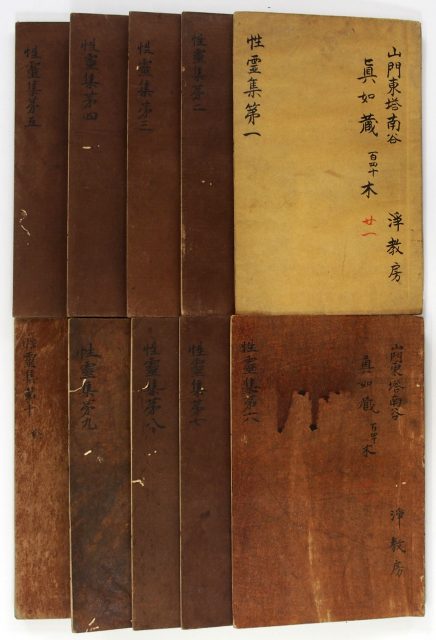 山門東塔南谷
淨教房
眞如蔵
百四十
木
廿一
性霊集第一
性霊集第二
性霊集第三
性霊集第四
性霊集第五
山門東塔南谷
淨教房
眞如蔵
百四十
木
性霊集第六
性霊集第七
性霊集第八
性霊集第九
性霊集第十